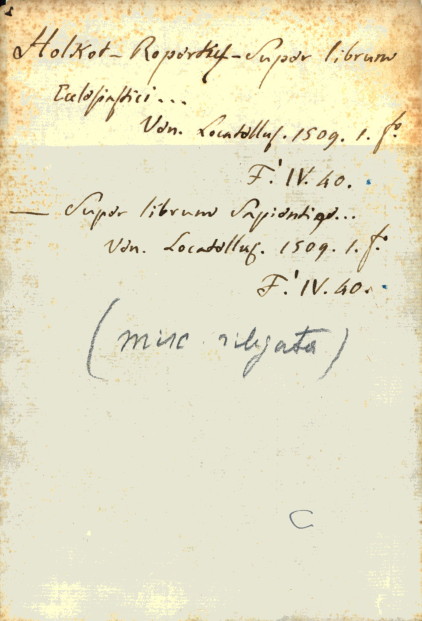 Holkot - Robertus - Super librum
Ecclesiastici...
Ven. Locatellus. 1509. 1. fo.
F.' IV. 40.
— Super librum Sapientiae...
Ven. Locatellus. 1509. 1. fo.
F.' IV. 40.
(misc. rilegata)
C